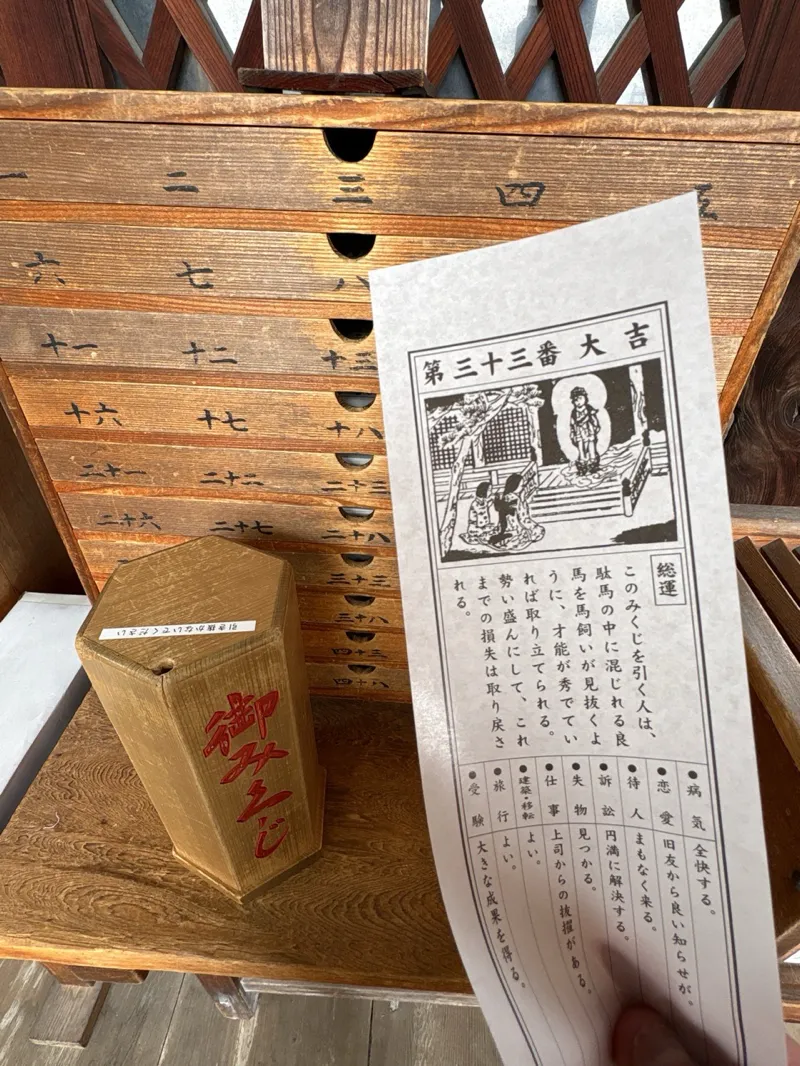 一
二
三
四
六
七
八
十一
十二
十三
十六
十七
十八
二十一
二十二
二十三
二十六
二十七
二十八
三十三
三十八
四十三
四十八
引き抜かないでください
御みくじ
第三十三番 大吉
総運
このみくじを引く人は、
駄馬の中に混じれる良
馬を馬飼いが見抜くよ
うに、才能が秀でてい
れば取り立てられる。
勢い盛んにして、これ
までの損失は取り戻さ
れる。
●病気 全快する。
●恋愛 旧友から良い知らせが。
●待人 まもなく来る。
●訴訟 円満に解決する。
●失物 見つかる。
●仕事 上司からの抜擢がある。
●建築・移転 よい。
●旅行 よい。
●受験 大きな成果を得る。